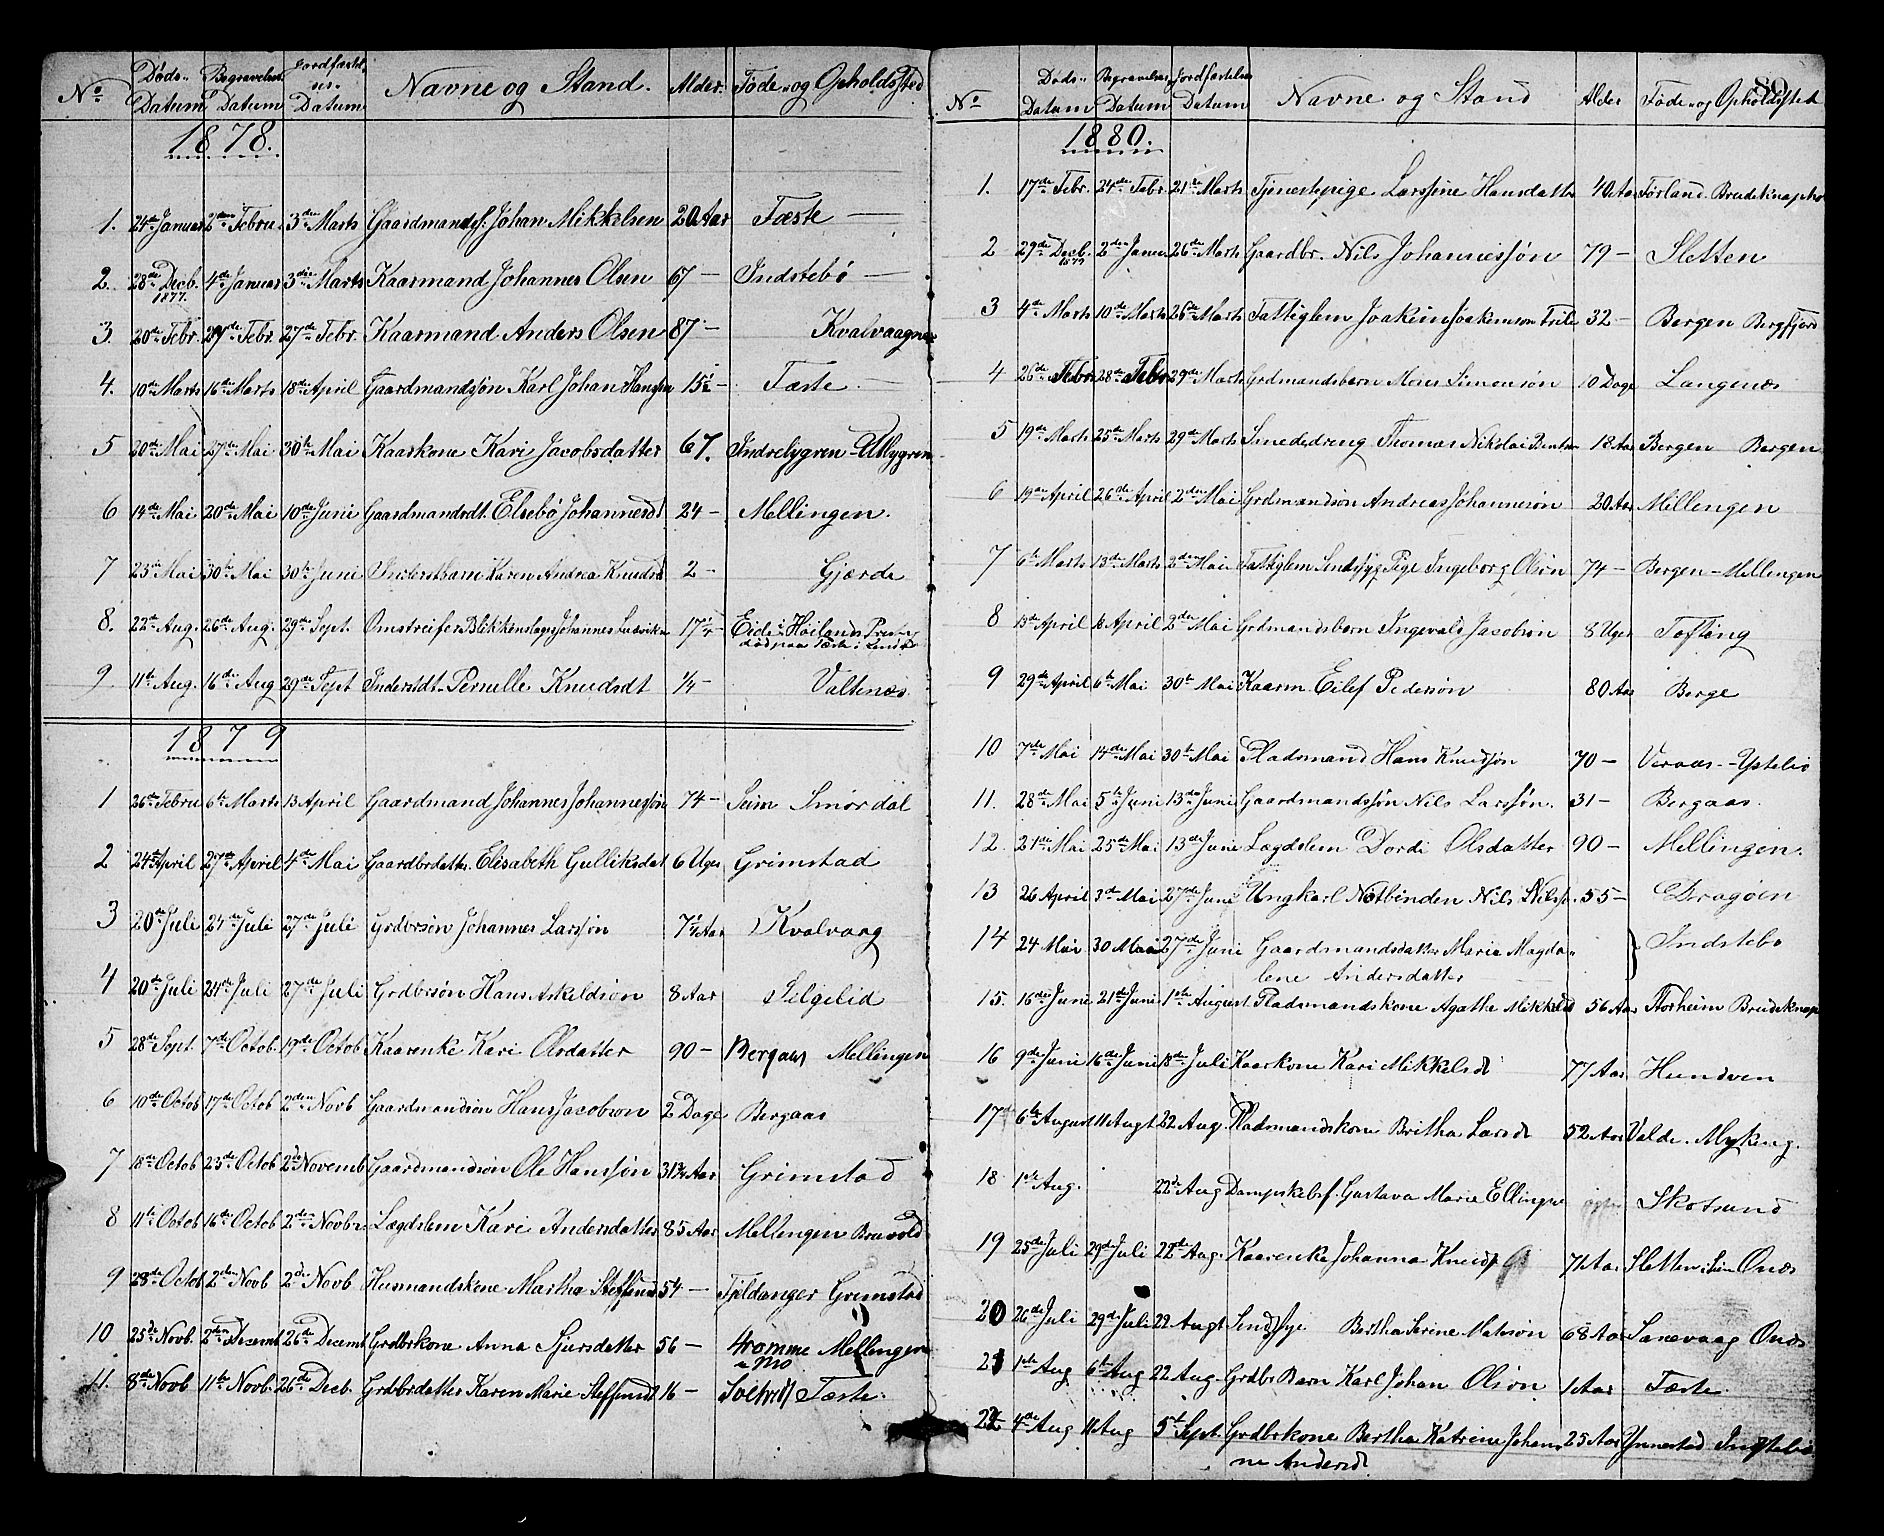 No. Døds- Datum Begravelses Datum Jordfæstel- ses- Datum Navne og Stand. Alder. Føde- og Opholdssted
1878.
1. 24de Januar 2den Febru. 3die Marts Gaardmands. Johan Mikkelsen 20 Aar Fæste —
2. 28de Decb. 1877. 4de Januar 3die Marts Kaarmand Johannes Olsen 67 — Indstebö —
3. 20de Febr. 27de Febr. 27de Febr. Kaarmand Anders Olsen 87 — Kvalvaagnes
4. 10de Marts 16de Marts 18de April Gaardmandsøn Karl Johan Hansen 15½ — Fæste —
5 20de Mai 27de Mai 30te Mai Kaarkone Kari Jacobsdatter 67. Indrelygren - Utlygren
6 14de Mai 20de Mai 10de Juni Gaardmandsdt. Elsebö Johannesdt 24 — Mellingen.
7 23de Mai 30te Mai 30te Juni Inderstbarn Karen Andrea Knudsd 2 — Gjærde
8. 22de Aug. 26de Aug. 29de Sept. Omstreifer Blikkenslager Johannes Ludvik 17½ Eide i Höilands Prest-
død paa Fæste i Lindås
9 11te Aug. 16de Aug 29de Sept Inderstdt. Pernelle Knudsdt ¼ — Valtenæs
1879
1 26de Febru 6te Marts 13 April Gaardmand Johannes Johannessøn 74 — Seim Smørdal
2 24de April 27de April 4de Mai Gaardbrdatter. Elisabeth Gulliksdat 6 Uger Grimstad
3 20de Juli 24de Juli 27de Juli Grdbrsøn Johannes Larsson 7½ Aar Kvalvaag
4 20de Juli 24de Juli 27de Juli Grdbrsøn Hans Askeldsøn 8 Aar Selgelid
5 28de Sept. 7de Octob. 19de Octob Kaarenke Kari Olsdatter 90 — Bergaas Mellingen
6 10de Octob 17de Octob 2den Novb Gaardmandsøn Hans Jacobson 2 Dage Bergaas
7 18de Octob 25de Octob 2de Novemb Gaardmandsøn Ole Hanssøn 31¾ Aar Grimstad
8 11te Octob 16de Octob 2de Novbr Lægdslem Kari Andersdatter 85 Aar Mellingen Bruvold
9 28de Octob 2de Novb 2de Novb Husmandskone Martha Steffensd 54 — Fjeldanger Grimstad
10 25de Novb. 2den Decemb 26de Decemb Grdbrkone Anna Sjursdatter 56 — Fromme Mellingen
u Mo
11. 8de Novb 11te Novb. 26de Decb. Grdbrdatter Karen Marie Steffensdt 16 — Fæste.
No Døds- Datum Begravelses Datum Jordfæstelses Datum Navne og Stand Alder Føde- og Opholdssted 89
1880.
1. 17de Febr. 24de Febr. 21de Marts Tjenestepige Larssine Hansdatter 40 Aar Førland. Brudeknappen
2 29de Decb. 1879 2den Januar 26de Marts Gaardbr. Nils Johannessøn 79 — Sletten
3 4de Marts 10de Marts 26de Marts Fattiglem Joakim Joakimson Friis 32 — Bergen Bergfjord
4 26de Febr 28de Febr 29de Marts Grdmandsbarn Moses Simonsøn 10 Dage Langenæs
5 19de Marts 25de Marts 29de Marts Smededreng Thomas Nikolai Bentsen 18 Aar Bergen Bergen
6 19de April 26de April 2den Mai Grdmandsøn Andreas Johannesøn 20 Aar Mellengen
7 6te Marts 13de Marts 2den Mai Fattiglem Sindssyg Pige Ingeborg Olsøn 74 — Bergen - Mellengen
8 15de April 16 April 2den Mai Grdmandsbarn Ingevald Jacobsøn 8 Uger Tofting
9 29de April 6te Mai 30te Mai Kaarm. Eilef Pedersøn 80 Aar Berge
10 7de Mai 14de Mai 30te Mai Pladsmand Hans Knudsøn 70 — Veraas - Ystebö
11. 28de Mai 5te Juni 13de Juni Gaardmandssøn Nils Larssøn. 31 — Bergaas.
12. 21de Mai 25de Mai 13de Juni Lægdslem Dordi Olsdatter 90 — Mellingen.
13 26 April 3de Mai 27de Juni Ungkarl Notbinden Nils Nilss. 55 — Dragøen
14 24 Mai 30 Mai 27de Juni Gaardmandsdatter Marie Magda-
lene Andersdatter } Indstebø
15. 16de Juni 21de Juni 1ste August Pladsmandskone Agathe Mikkelsd 56 Aar Storheim Brudeknap
16 9de Juni 16de Juni 18de Juli Kaarkone Kari Mikkelsd 77 Aar Hundven
17 6te August 11 Augt 22 Aug. Pladsmandskone Britha Larsd 52 Aar Valde. Myking.
18 1ste Aug. 22de Aug Dampskelsf. Gustava Marie Ellingse Skotsund
19 25de Juli 29de Juli 22de Aug. Kaarenke Johanna Knuds 71 Aar Sletten i Seim Onæs
20 26de Juli 29de Juli 22 Augt Sindssye Bertha Serine Matsøn 68 Aar Sanevaag Onæs
21 1ste Aug 6te Aug 22 Aug. Grdbr Barn Karl Johan Olsøn 1 Aar Fæste.
22 4de Aug 11 Aug 5te Sept. Grdbrkone Bertha Katrine Johan-
ne Andersd 25 Aar Ynnestad Indstebø